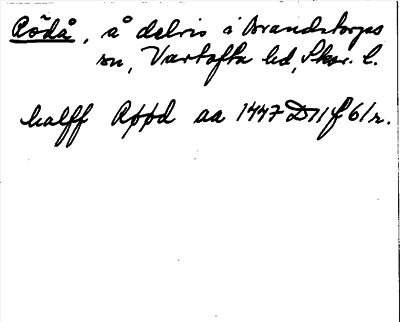 Rödå, å delvis i Brandstorps
sn, Vartofta hd, Skar. l.
halff Røþd aa 1447 D11 f 61r.